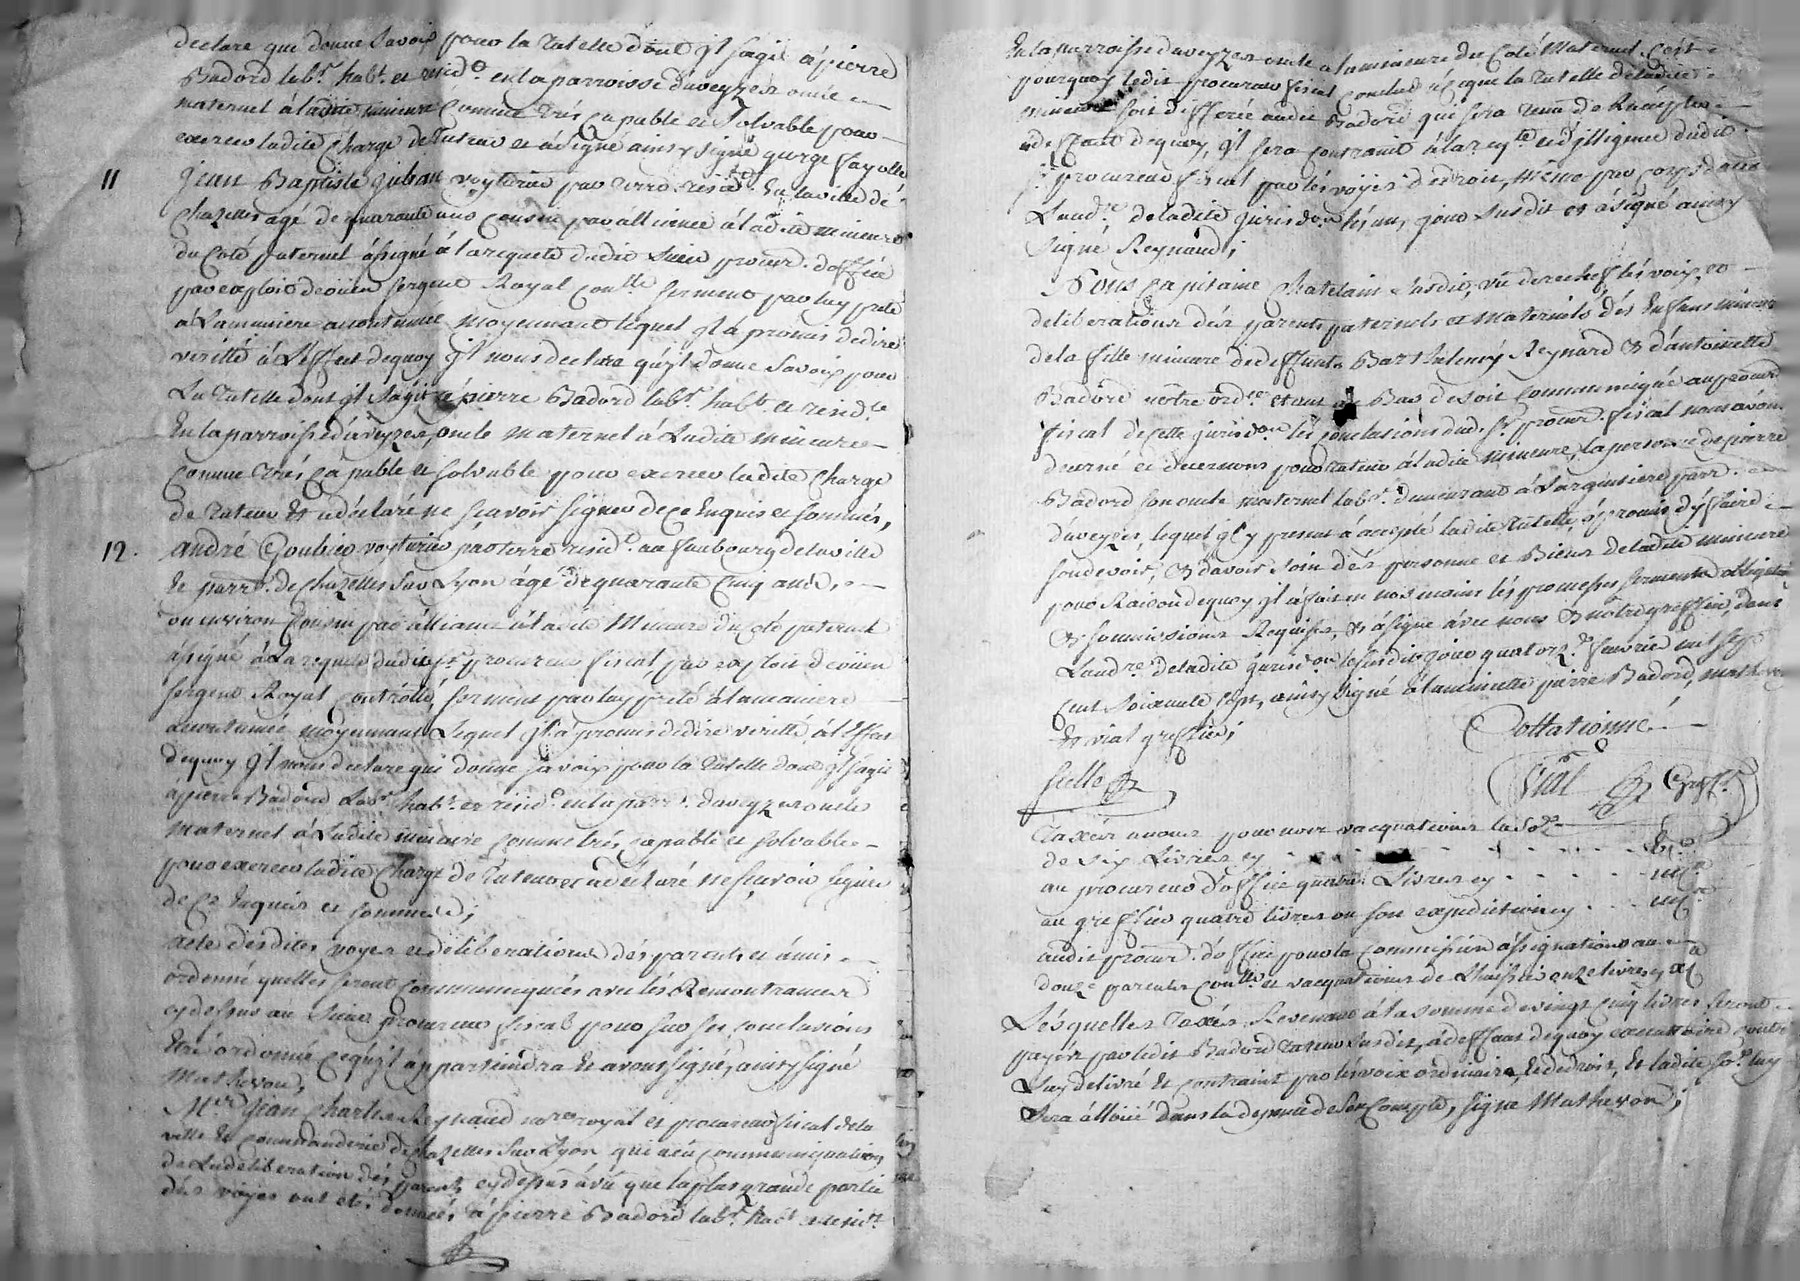 declare que donne sa voix pour la tutelle dont il sagit à pierre
Badord labr. habt. et reside. en la parroisse d'aveyzes oncle
maternel à ladite mineure Comme très capable et solvable pour
exercer ladite Charge de Tuteur et à signé ainsy signé george fayolle
11 jean Baptiste guban voyturier par terre reside. En la ville de
Chazelles agé de quarante ans cousin par alliance à ladite mineure
du Coté paternel assigné à la requete dudit Sieur procur. d'office
par exploit de ouen sergent Royal conllé serment par luy preté
à la maniere accoutumée moyennant lequel il à promis de dire
verité à L'effect de quoy il nous declare quil donne sa voix pour
La Tutelle dont il sagit à pierre Badord labr. habt. et reside
En la parroisse d'aveyzes oncle maternel à Ladite mineure
Comme très capable et solvable pour exercer ladite Charge
de Tuteur Et a déclaré ne sçavoir signer de ce Enquis et sommés,
12. andré Goubier voyturier par terre reside. au faubourg de la ville
Et parr. de Chazelles sur Lyon agé de quarante Cinq ans
ou environ Cousin par alliance à ladite Mineure du Coté paternel
assigné à La requete dudit sr. procureur fiscal par exploit de ouen
sergent Royal Controllé, serment par luy preté à la maniere
accoutumée moyennant Lequel il à promis de dire verité, à l'effet
de quoy il nous declare qui donne sa voix pour la Tutelle dont il sagit
à pierre Badord Labr. habt. et reside. en la parr. d'aveyzes oncle
maternel à Ladite mineure comme très capable et solvable
pour exercer ladite Charge de Tuteur et a declaré ne sçavoir signer
de ce Enquis et sommé;
acte desdites voyes et deliberations des parents et amis
ordonné quelles seront Communiquées avec les Remontrances
cy dessus au Sieur procureur fiscal pour sur ses conclusions
Etre ordonné ce qu'il appartiendra Et avons signé, ainsy signé
Mathevon,
Mtre jean Charles Reynaud nore royal et procureur fiscal de la
ville Et Commanderie de Chazelles sur Lyon qui a eu communiquation
de La deliberation des parents cy dessus à vû que la plus grande partie
des voyes ont eté données à pierre Badord labr. habt. et reside
En la parroisse d'aveyzes oncle à la mineure du Coté Maternel C'est
pourquoy ledit procureur fiscal conclud à ce que la Tutelle de ladite
mineure soit differée audit Badord qui sera tenu de l'accepter
à deffaut de quoy, il sera contraint à la reqte. et diligence dudit
sr procureur fiscal par les voyes de droit, même par corps dans
L'audre. de ladite jurisdon les an, jour susdit et à signé ainsy
signé Reynaud;
Nous Capitaine Chatelain susdit, vû derechef les voix, et
deliberations des parents paternels et maternels des Enfans mineurs
de la fille mineure de deffunts Barthelemy Reynard & d'antoinette
Badord notre ordce. etant au Bas de soit communiqué au procur.
fiscal de cette jurisdon les conclusions dud. sr. procur. fiscal nous avons
decerné et decernons pour tuteur à ladite mineure, la personne de pierre
Badord son oncle maternel labr. demeurant à Largentiere parr.
d'aveyzes, lequel icy present à accepté ladite Tutelle, à promis d'y faire
son devoir, & d'avoir soin des personne et Biens de ladite mineure
pour Raison de quoy il à fait en nos mains les promesses serments obligations
& soumissions Requises, & à signé avec nous & notre greffier, dans
L'audre. de ladite jurison le susdit jour quatorze. fevrier mil sept
Cent soixante sept, ainsy signé à la minutte pierre Badord, mathevon
Et vial greffier;
Collationné
scellé
Vial Greffr.
Taxés à nous pour notre vacquations la Sôe
de six Livres cy . . . . . . . . .
au procureur d'office quatre Livres cy . . . . . .
au greffier quatre livres ou son expedition cy . . .
audit procur. d'office pour la commission assignations aux
douze parents conlle et vacquations de L'huissier onze livres cy
Lesquelles Taxes Revenant à la somme de vingt Cinq livres seront
payées par ledit Badord tuteur susdit, à deffaut de quoy executtoire contre
Luy delivré Et contraint par les voix ordinaire, Et de droit, Et ladite sôe luy
sera alloüé dans la depense de son Compte, signé Mathevon;